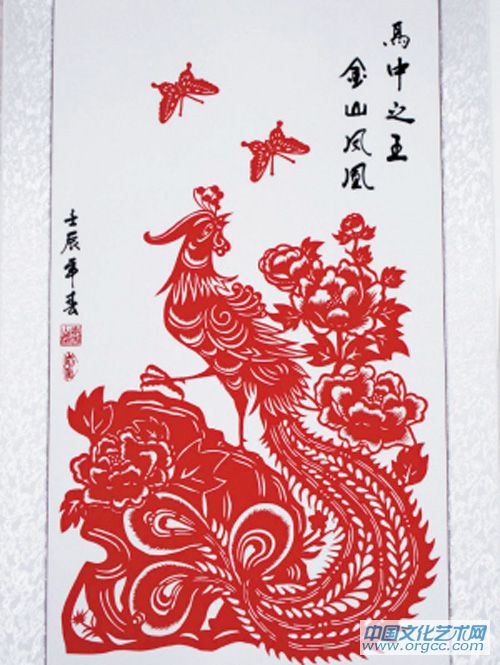 鳥中之王
金山凤凰
壬辰年春
中国文化艺术网
www.orgcc.com